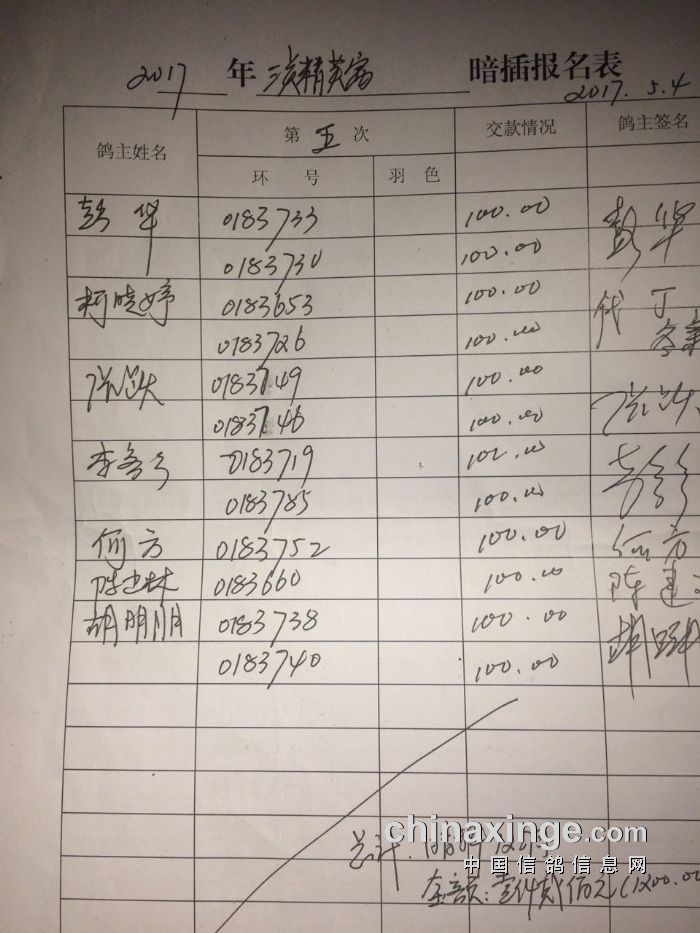 2017 年 精英 暗插报名表
2017. 5.4
鸽主姓名 第 五 次 交款情况 鸽主签名
环 号 羽 色
彭华 0183733 100.00 彭华
0183730 100.00
柯晓婷 0183653 100.00 代丁
0183726 100.00
0183749 100.00
0183746 100.00
0183719 100.00
0183785 100.00
何方 0183752 100.00 何方
陈建林 0183660 100.00 陈建
胡明朋 0183738 100.00
0183740 100.00
chinaxinge.com
总计.
中国信鸽信息网
金额:壹仟贰佰元(1200.00